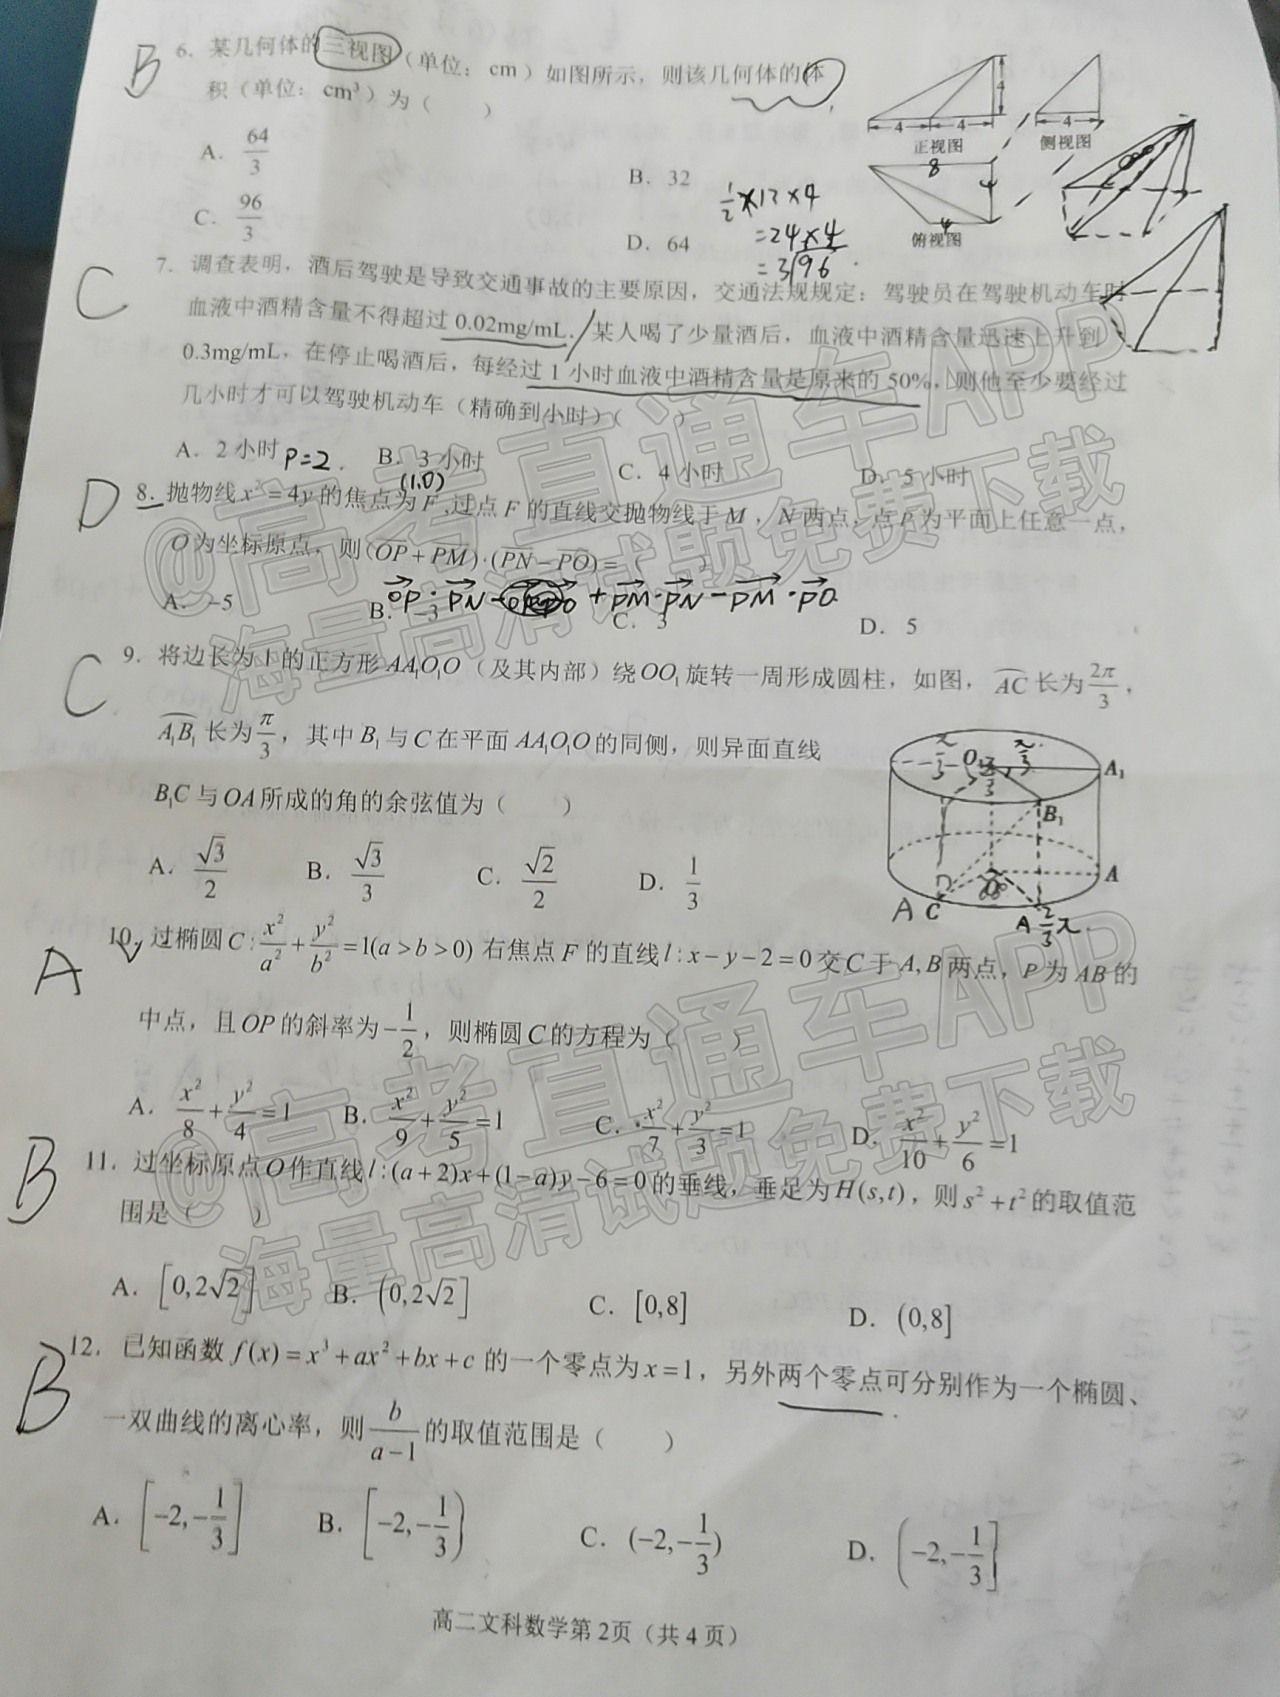 B 6．某几何体的三视图（单位：cm）如图所示，则该几何体的体
积（单位：cm³）为（　　）
A．64/3
B．32
C．96/3
D．64
4
4 4
正视图
4
侧视图
8
4
4
俯视图
1/2×12×4
=24×4
=3√96
C 7．调查表明，酒后驾驶是导致交通事故的主要原因，交通法规规定：驾驶员在驾驶机动车时
血液中酒精含量不得超过 0.02mg/mL．某人喝了少量酒后，血液中酒精含量迅速上升到
0.3mg/mL，在停止喝酒后，每经过 1 小时血液中酒精含量是原来的 50%，则他至少要经过
几小时才可以驾驶机动车（精确到小时）（　　）
A．2 小时 P=2. B．3 小时 C．4 小时 D．5 小时
(1.0)
D 8．抛物线 x²=4y 的焦点为 F，过点 F 的直线交抛物线于 M，N 两点，点 P 为平面上任意一点，
O 为坐标原点，则(OP+PM)·(PN−PO)=（　　）
OP·PN− +PM·PN−PM·PO
A．−5 B．−3 C．3 D．5
C 9．将边长为 1 的正方形 AA₁O₁O（及其内部）绕 OO₁ 旋转一周形成圆柱，如图，AC 长为 2π/3，
A₁B₁ 长为 π/3，其中 B₁ 与 C 在平面 AA₁O₁O 的同侧，则异面直线
B₁C 与 OA 所成的角的余弦值为（　　）
A．√3/2 B．√3/3 C．√2/2 D．1/3
A₁
B₁
A
A C
A 2/3π.
A 10．过椭圆 C：x²/a²+y²/b²=1(a>b>0) 右焦点 F 的直线 l：x−y−2=0 交 C 于 A,B 两点，P 为 AB 的
中点，且 OP 的斜率为 −1/2，则椭圆 C 的方程为（　　）
A．x²/8+y²/4=1 B．x²/9+y²/5=1 C．x²/7+y²/3=1 D．x²/10+y²/6=1
B 11．过坐标原点 O 作直线 l：(a+2)x+(1−a)y−6=0 的垂线，垂足为 H(s,t)，则 s²+t² 的取值范
围是（　　）
A．[0,2√2] B．(0,2√2] C．[0,8] D．(0,8]
B 12．已知函数 f(x)=x³+ax²+bx+c 的一个零点为 x=1，另外两个零点可分别作为一个椭圆、
一双曲线的离心率，则 b/(a−1) 的取值范围是（　　）
A．[−2,−1/3] B．[−2,−1/3) C．(−2,−1/3) D．(−2,−1/3]
高二文科数学第 2页（共 4 页）
@高考直通车APP
海量高清试题免费下载
@高考直通车APP
海量高清试题免费下载